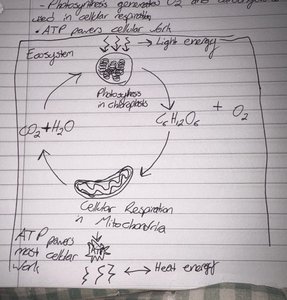 - Photosynthesis generates O2 and
used in cellular respiration
• ATP powers cellular work
Ecosystem
Light energy
Photosynthesis
in chloroplasts
CO2 + H2O
C6H12O6 + O2
Cellular Respiration
in Mitochondria
ATP powers
most cellular
work
ATP
Heat energy